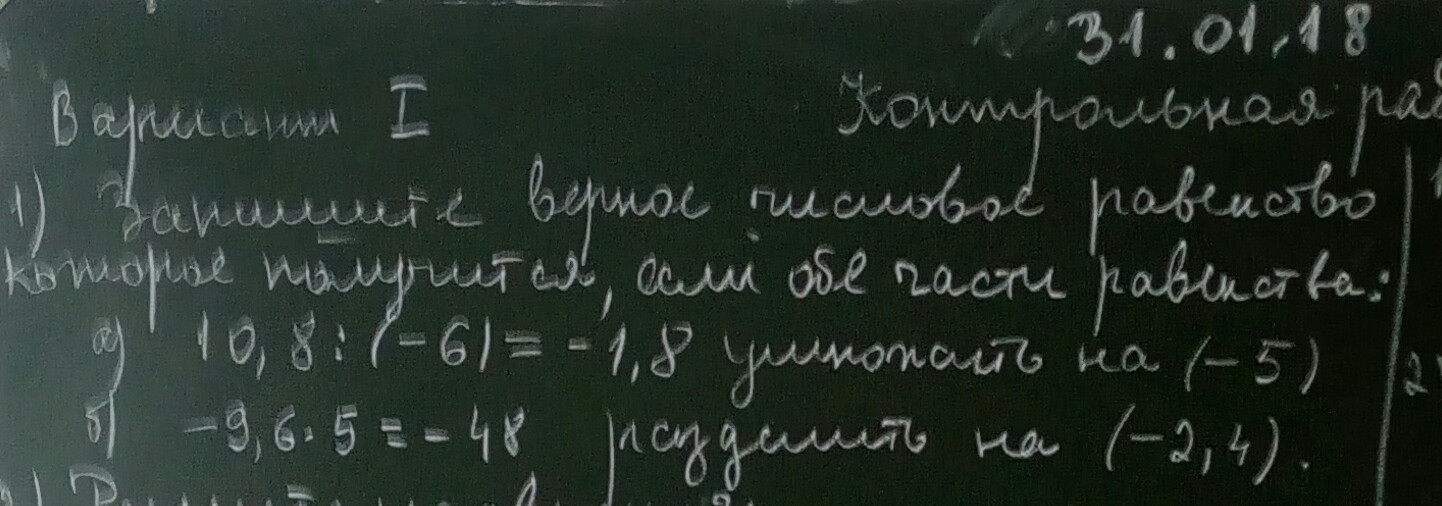 31.01.18
Вариант I Контрольная раб
1) Запишите верное числовое равенство
которое получится, если обе части равенства:
а) 10,8 : (-6) = -1,8 умножить на (-5)
б) -9,6 · 5 = -48 разделить на (-2,4).